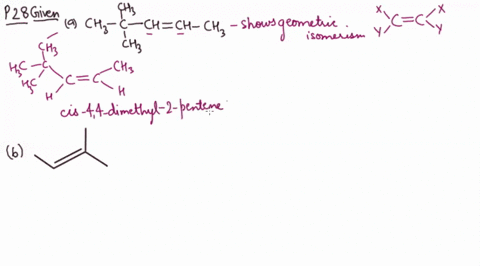 P28 Given
CH3
(a) CH3-C-CH=CH-CH3 - shows geometric isomerism.
CH3
X X
C=C
Y Y
CH3
H3C C CH3
H3C C=C
H H
cis-4,4-dimethyl-2-pentene
(b)